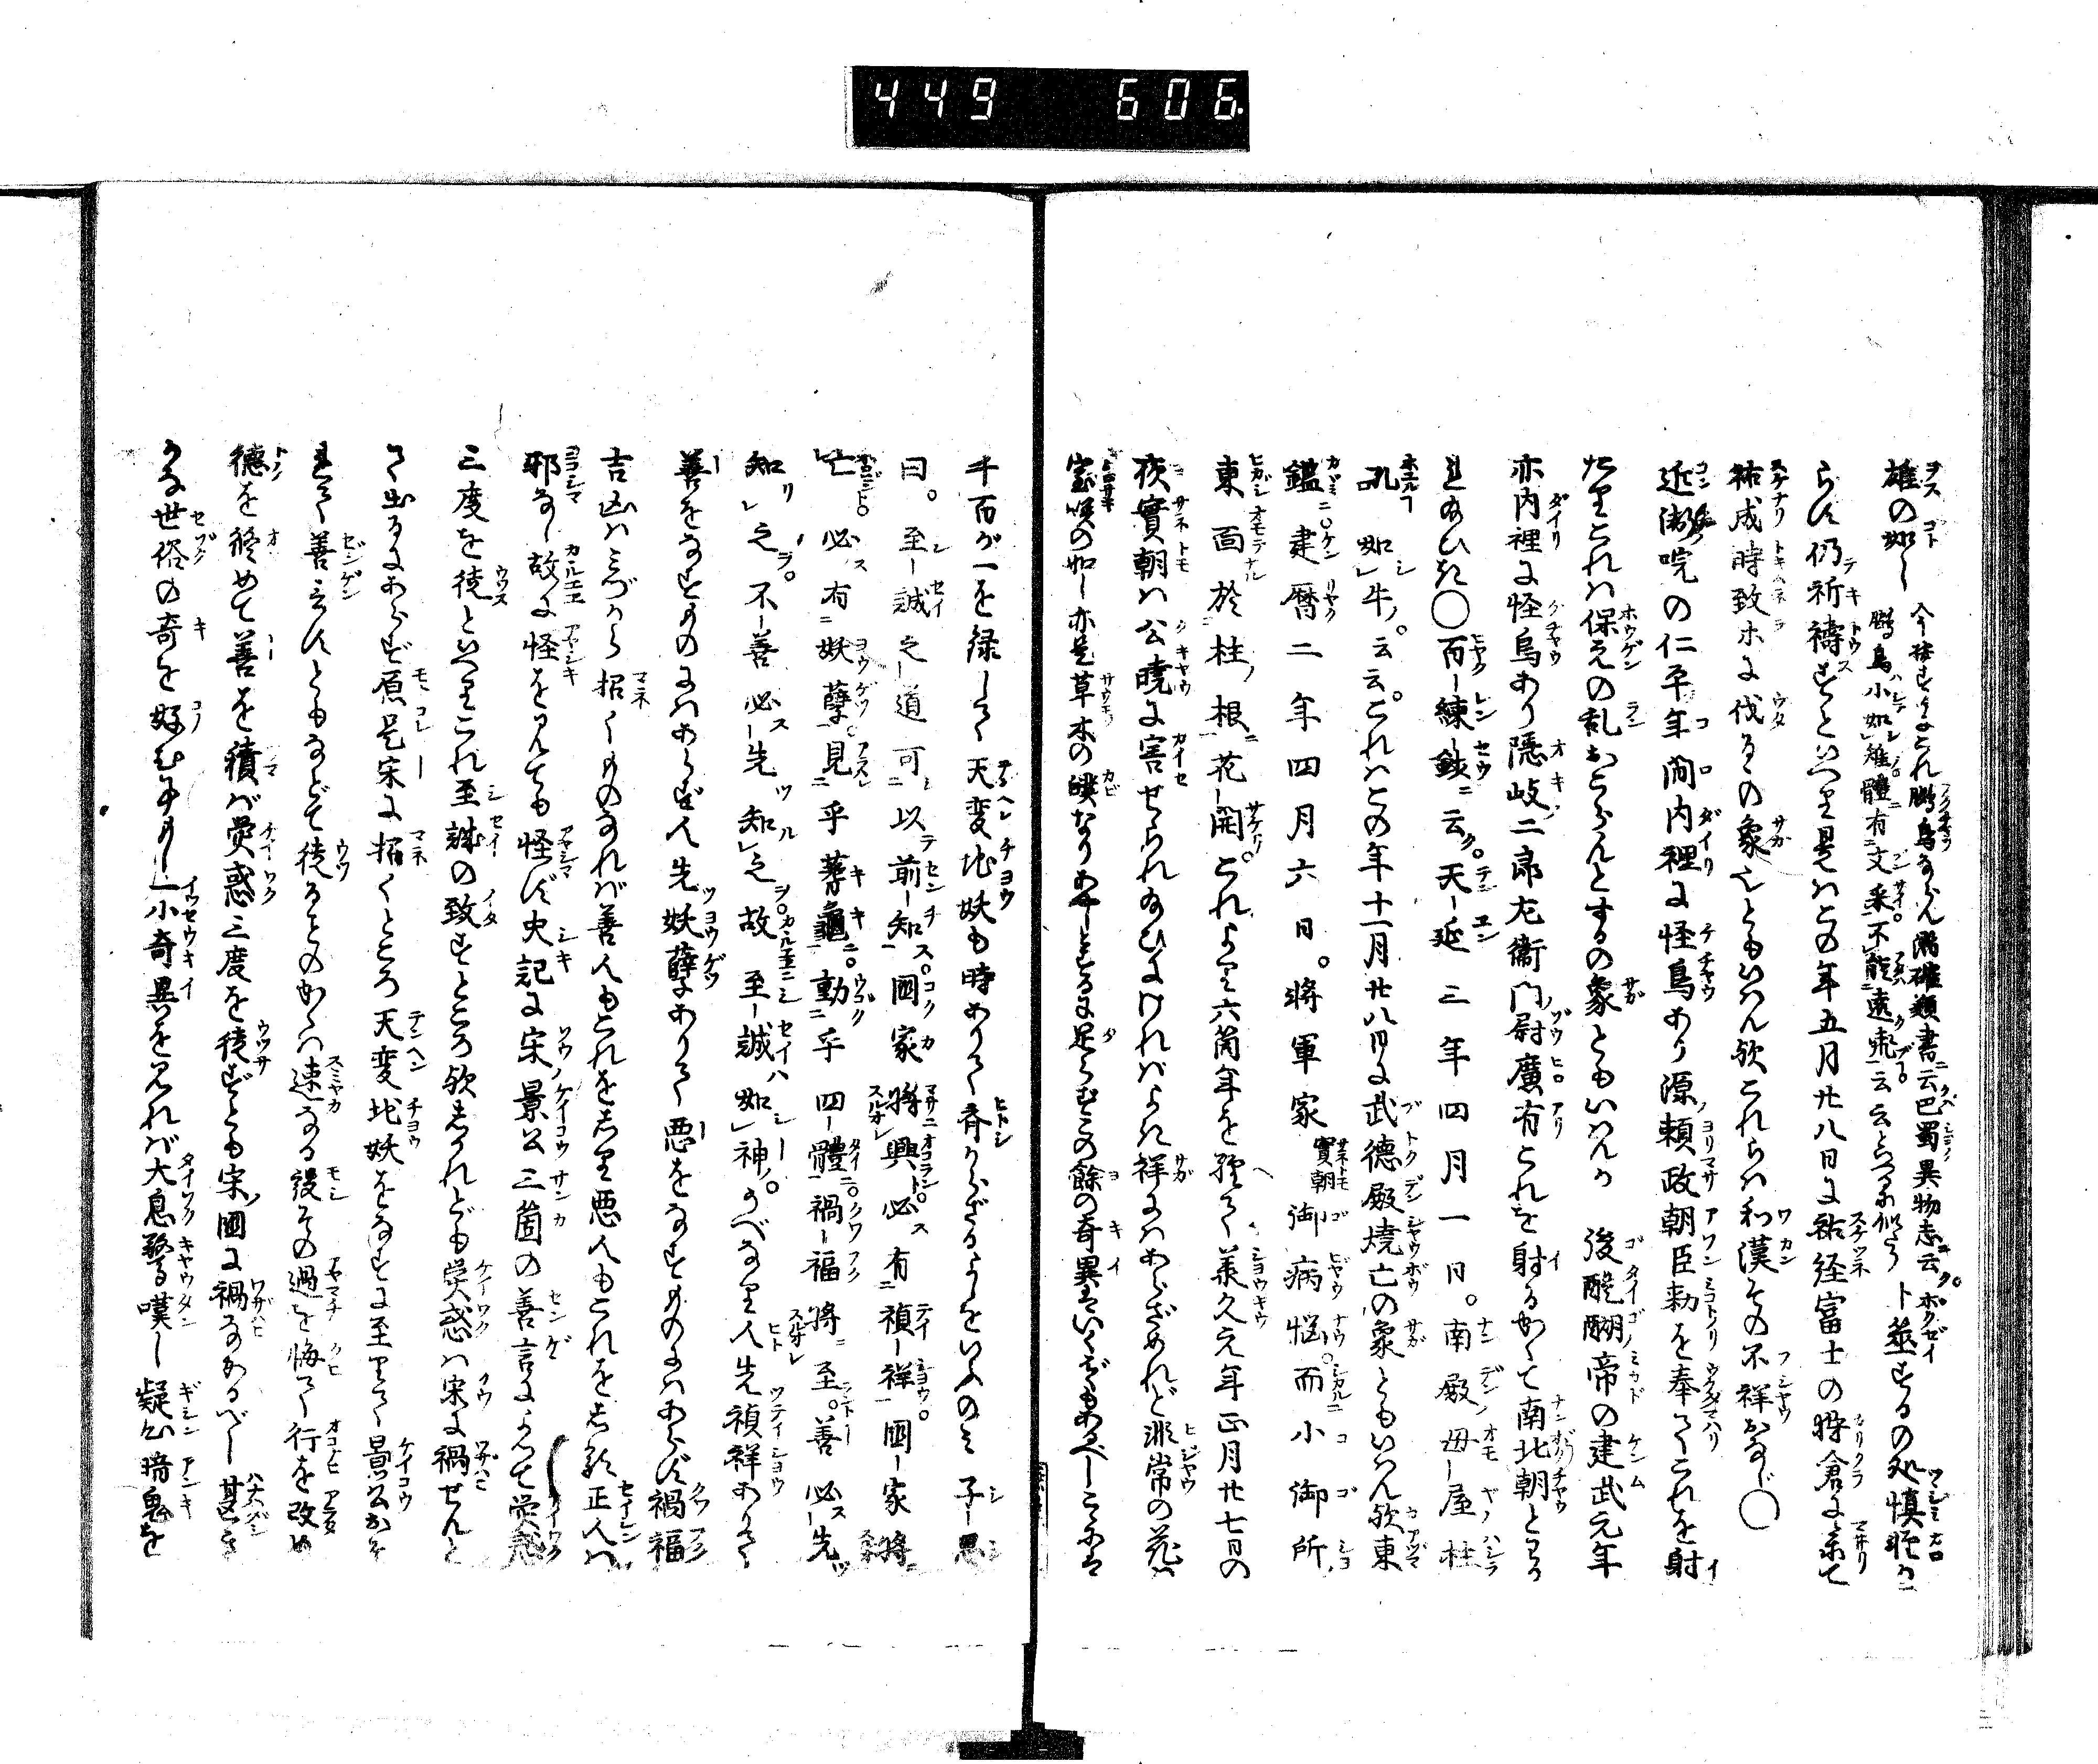 449 606
雄の如し 今按ずるにこれ鵩鳥ならん潜確類書ニ云巴蜀異物志云
鵩鳥小如雉體有文采不能遠飛云云とあるに似たり 卜筮するの処慎軽か
らず仍祈禱すといへり是はこの年五月廿八日に祐経富士の狩倉に参て
祐成時致ホに伐るゝの象ともいはん歟これらは和漢その不祥おなじ〇
近衛院の仁平年間内裡に怪鳥あり源頼政朝臣勅を奉てこれを射
たりこれは保元の乱おこらんとするの象ともいはんか 後醍醐帝の建武元年
亦内裡に怪鳥あり隠岐二郎左衛門尉廣有これを射るかくて南北朝とわか
れ給ひき〇百練鈔ニ云ク。天延二年四月一日。南殿ノ母屋柱
孔如牛。云云。これはこの年十一月廿八日に武徳殿焼亡の象ともいはん歟東
鑑ニ。建暦二年四月六日。將軍家實朝御病悩。而小御所ノ
東面於柱ノ根ニ花開。これより六箇年を経て承久元年正月廿七日の
夜實朝は公暁に害せられ給ひければよき祥にはあらざめれど非常の花は
室咲の如し亦是草木の黴なりあやしとするに足らずこの餘の奇異はいくばくもあるべしここには
千百が一を録して天変地妖も時ありて斉からざるよしをいふのミ 子思
曰。至誠之道可以前知ス。國家將興。必有禎祥。國家將
亡。必有妖孽。見乎蓍龜。動乎四體。禍福將至。善必先
知之ヲ。不善必先知之ヲ。故至誠ハ如神。うべなり人先禎祥ありて
善をなすものにはあらず人先妖孽ありて悪をなすものにはあらず禍福
吉凶はミづから招くものなれば善人もこれを志り悪人もこれを志る正人は
邪なし故に怪を見ても怪まず史記に宋ノ景公三箇の善言によりて熒惑
三度を徙といへりこれ至誠の致すところ歟されども熒惑は宋に禍せんと
て出るにあらず原是宋に招くところ天変地妖をなすに至りて景公おそ
れて善言はずともなどて徙るとのかくは速なる縦その過を悔て行を改め
徳を脩めて善を積ば熒惑三度を徙ずとも宋ノ國に禍なかるべし甚き
かな世俗の奇を好むや一小奇異を見れば大息驚嘆し疑心暗鬼を